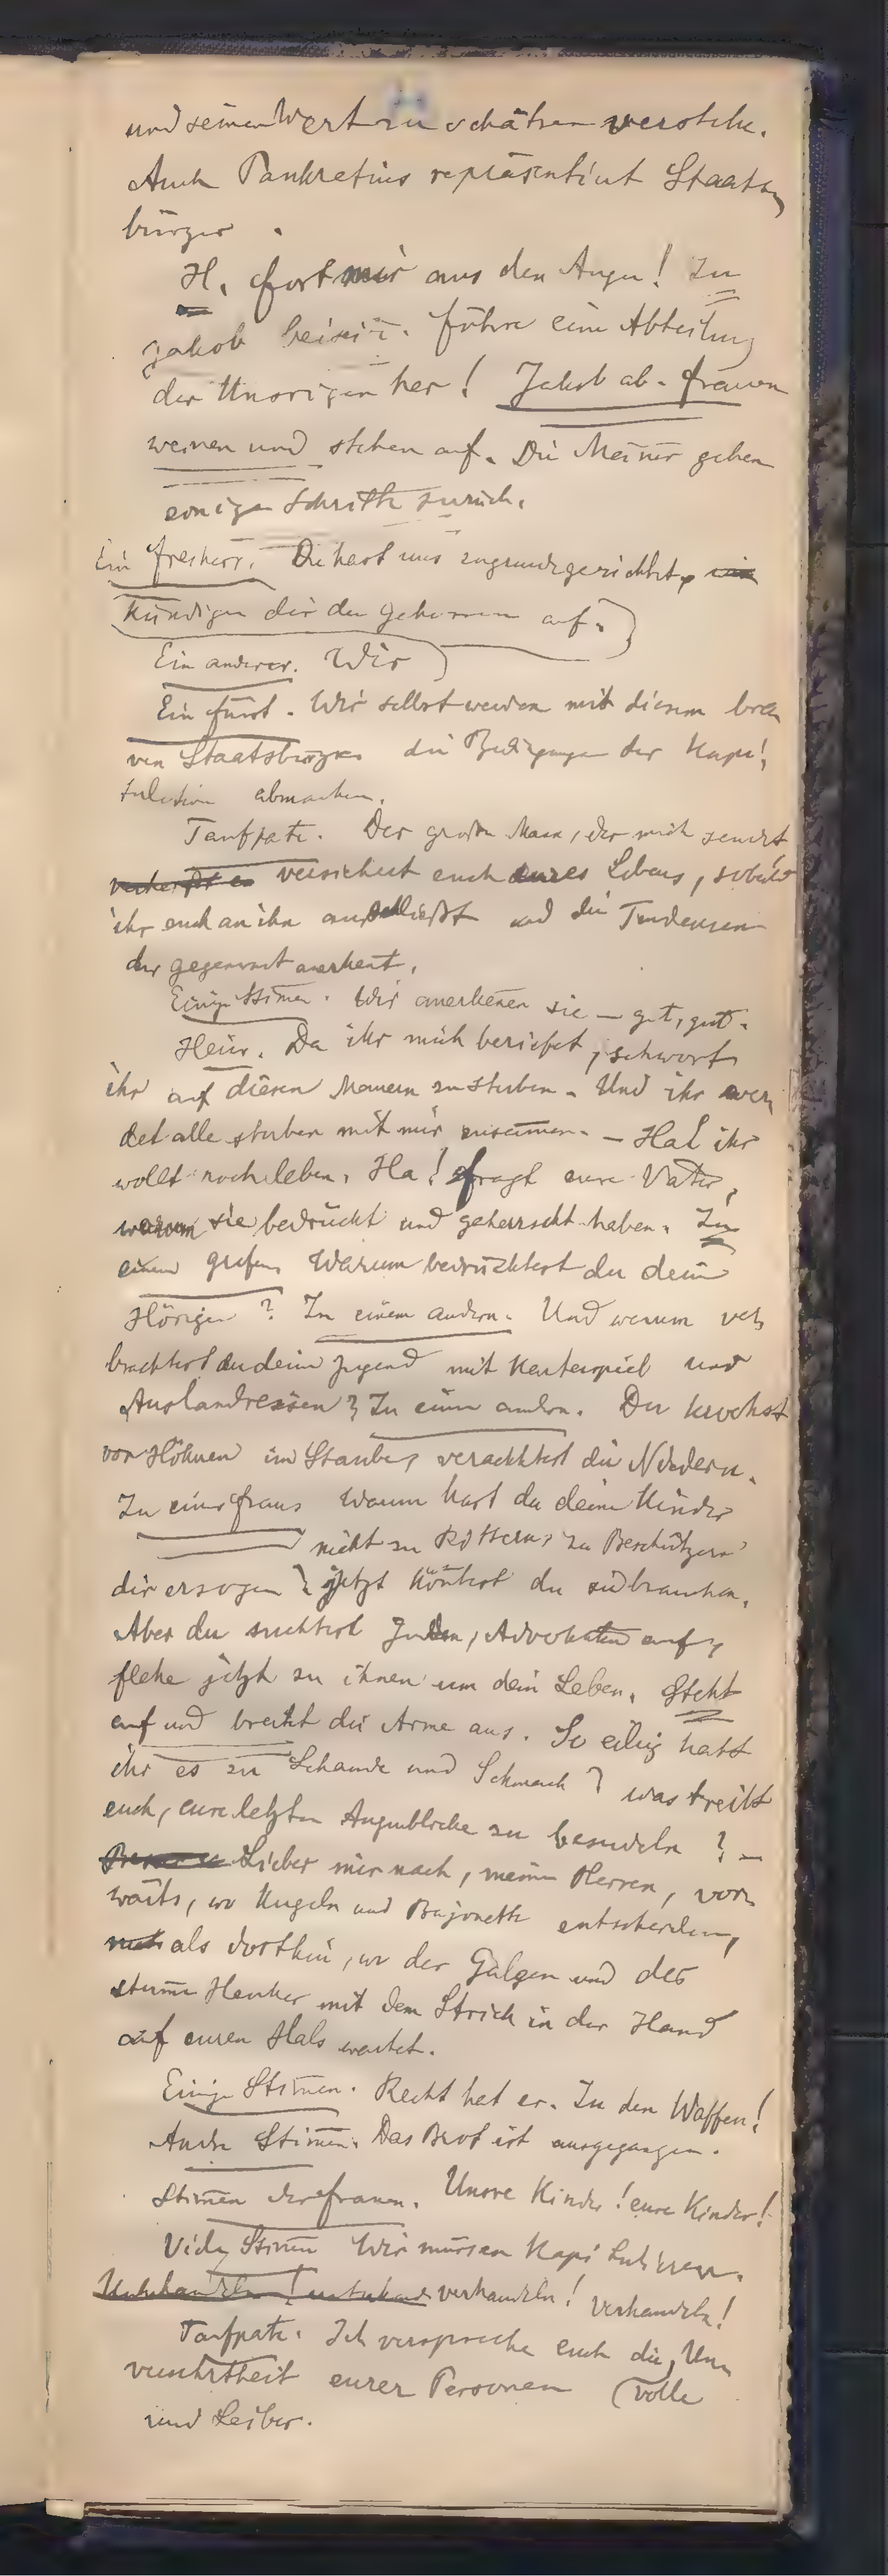 und seinen Wert zu schätzen verstehe.
Auch Pankratius repräsentiert Staats-
bürger.
H. Fort mir aus den Augen! Zu
Jakob beiseit. Führe eine Abteilung
der Unsrigen her! Jakob ab. Frauen
weinen und stehen auf. Die Meiner gehen
einige Schritte zurück.
Ein Freiherr. Du hast uns zugrundegerichtet, wir
kündigen dir den Gehorsam auf.
Ein anderer. Wir
Ein Fürst. Wir selbst werden mit diesem bra-
ven Staatsbürger die Bedingungen der Kapi-
tulation abmachen.
Taufpate. Der große Mann, der mich sendet
versichert euch eures Lebens, sobald
ihr euch an ihn anschließt und die Tendenzen
der Gegenwart anerkent.
Einige Stimen. Wir anerkenen sie – gut, gut.
Heinr. Da ihr mich berieft, schwort
ihr auf diesen Mauern zu sterben. Und ihr wer-
det alle sterben mit mir zusamen. – Ha! ihr
wollt noch leben. Ha! fragt eure Väter,
warum sie bedrückt und geherrscht haben. Zu
einem Grafen. Warum bedrücktest du dein
Hörigen? Zu einem andern. Und warum ver-
brachtest du deine Jugend mit Kartenspiel und
Auslandreisen? Zu einem andern. Du krochst
vor Höhern im Staube, verachtetest die Niedern.
Zu einer Frau. Warum hast du deine Kinder
nicht zu Rittern, zu Beschützern
dir erzogen? jetzt köntest du sie brauchen.
Aber du suchtest Juden, Advokaten auf,
flehe jetzt zu ihnen um dein Leben. Steht
auf und breitet die Arme aus. So eilig habt
ihr es zu Schande und Schmach? was treibt
euch, eure letzten Augenblicke zu besudeln? –
Lieber mir nach, meine Herren, vor-
wärts, wo Kugeln und Bajonette entscheiden,
als dorthin, wo der Galgen und der
stume Henker mit dem Strick in der Hand
auf euren Hals wartet.
Einige Stimen. Recht hat er. Zu den Waffen!
Andre Stimen. Das Brot ist ausgegangen.
Stimen der Frauen. Unsre Kinder! eure Kinder!
Viele Stimen Wir müssen kapitulieren.
Unterhandeln! verhandeln! Verhandeln!
Taufpate. Ich verspreche euch die Un-
versehrtheit eurer Personen (volle
und Leiber.